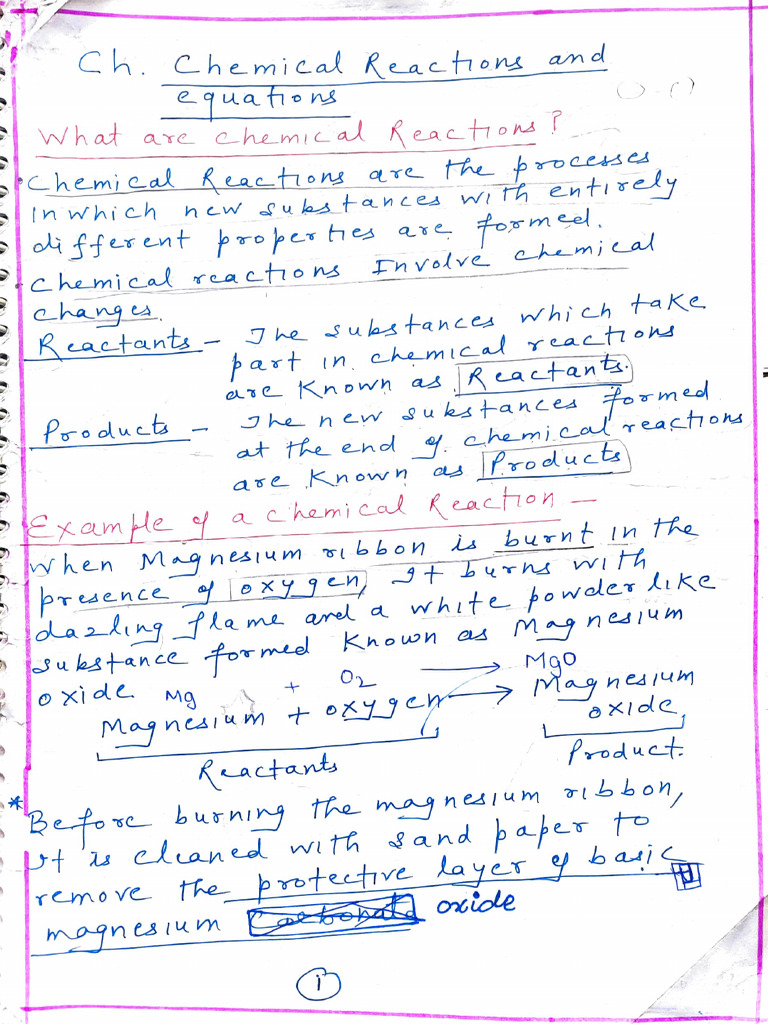 Ch. Chemical Reactions and
equations
What are chemical Reactions?
Chemical Reactions are the processes
In which new substances with entirely
different properties are formed.
Chemical reactions Involve chemical
changes.
Reactants - The substances which take
part in chemical reactions
are known as Reactants.
Products - The new substances formed
at the end of chemical reactions
are known as Products
Example of a chemical Reaction -
When Magnesium ribbon is burnt in the
presence of oxygen, It burns with
dazling flame and a white powder like
substance formed known as Magnesium
oxide
Mg + O2 → MgO
Magnesium + oxygen → Magnesium
oxide
Reactants Product.
* Before burning the magnesium ribbon,
It is cleaned with sand paper to
remove the protective layer of basic
magnesium Carbonate oxide
1